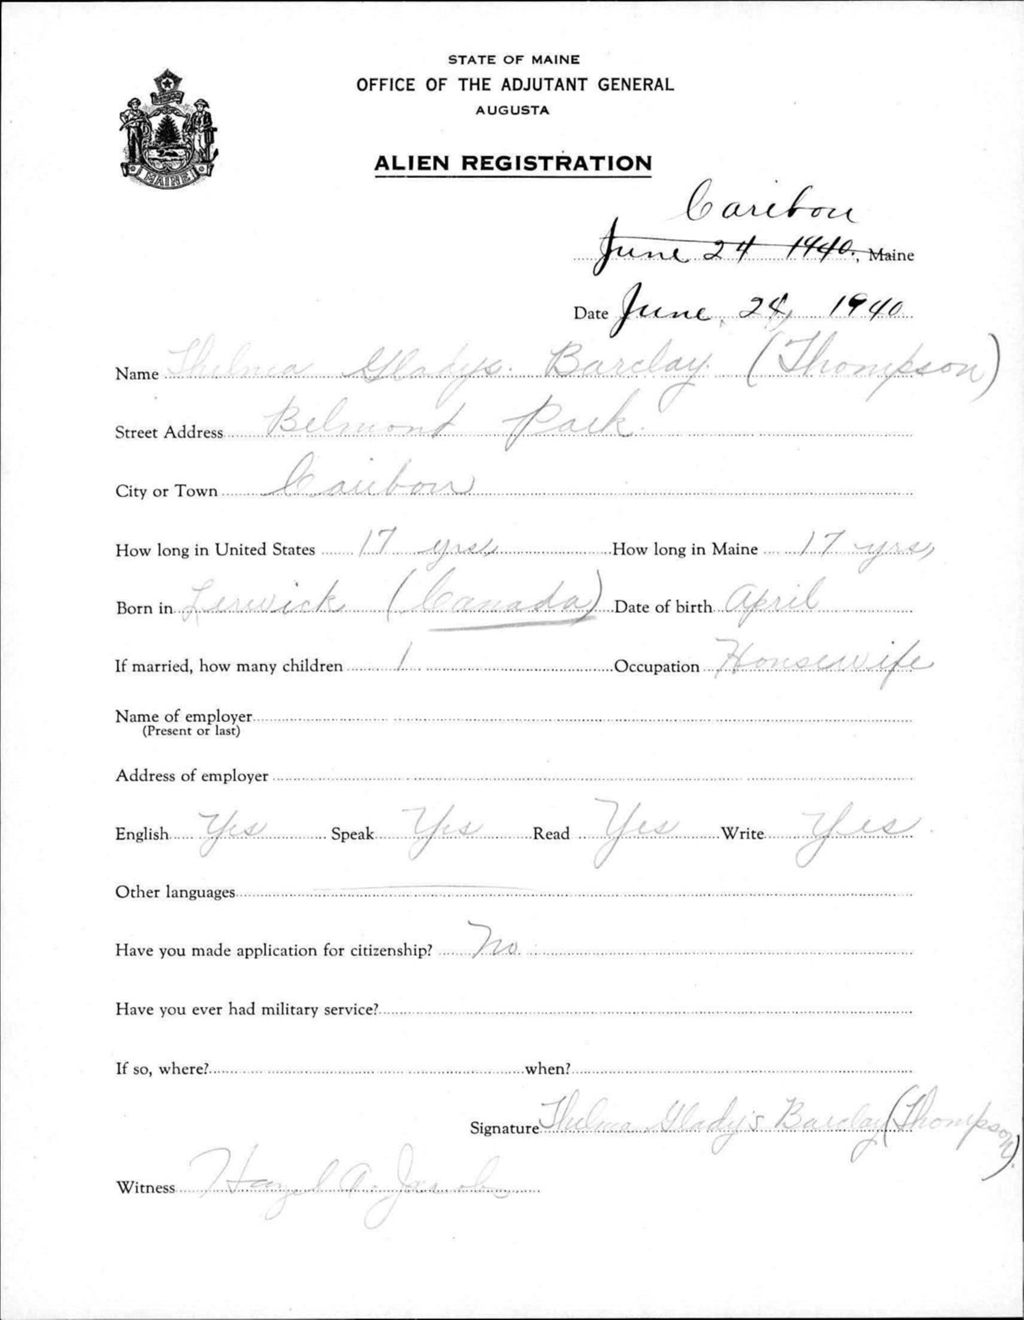 STATE OF MAINE
OFFICE OF THE ADJUTANT GENERAL
AUGUSTA
ALIEN REGISTRATION
MAINE
Caribou
June 24 1940, Maine
Date June, 24, 1940
Name Thelma Gladys. Barclay. (Thompson)
Street Address Belmont Park.
City or Town Caribou
How long in United States 17 yrs, How long in Maine 17 yrs,
Born in Lerwick (Canada) Date of birth April
If married, how many children 1 Occupation Housewife
Name of employer
(Present or last)
Address of employer
English Yes Speak Yes Read Yes Write Yes
Other languages
Have you made application for citizenship? No.
Have you ever had military service?
If so, where? when?
Signature Thelma Gladys Barclay (Thompson).
Witness Hazel A.